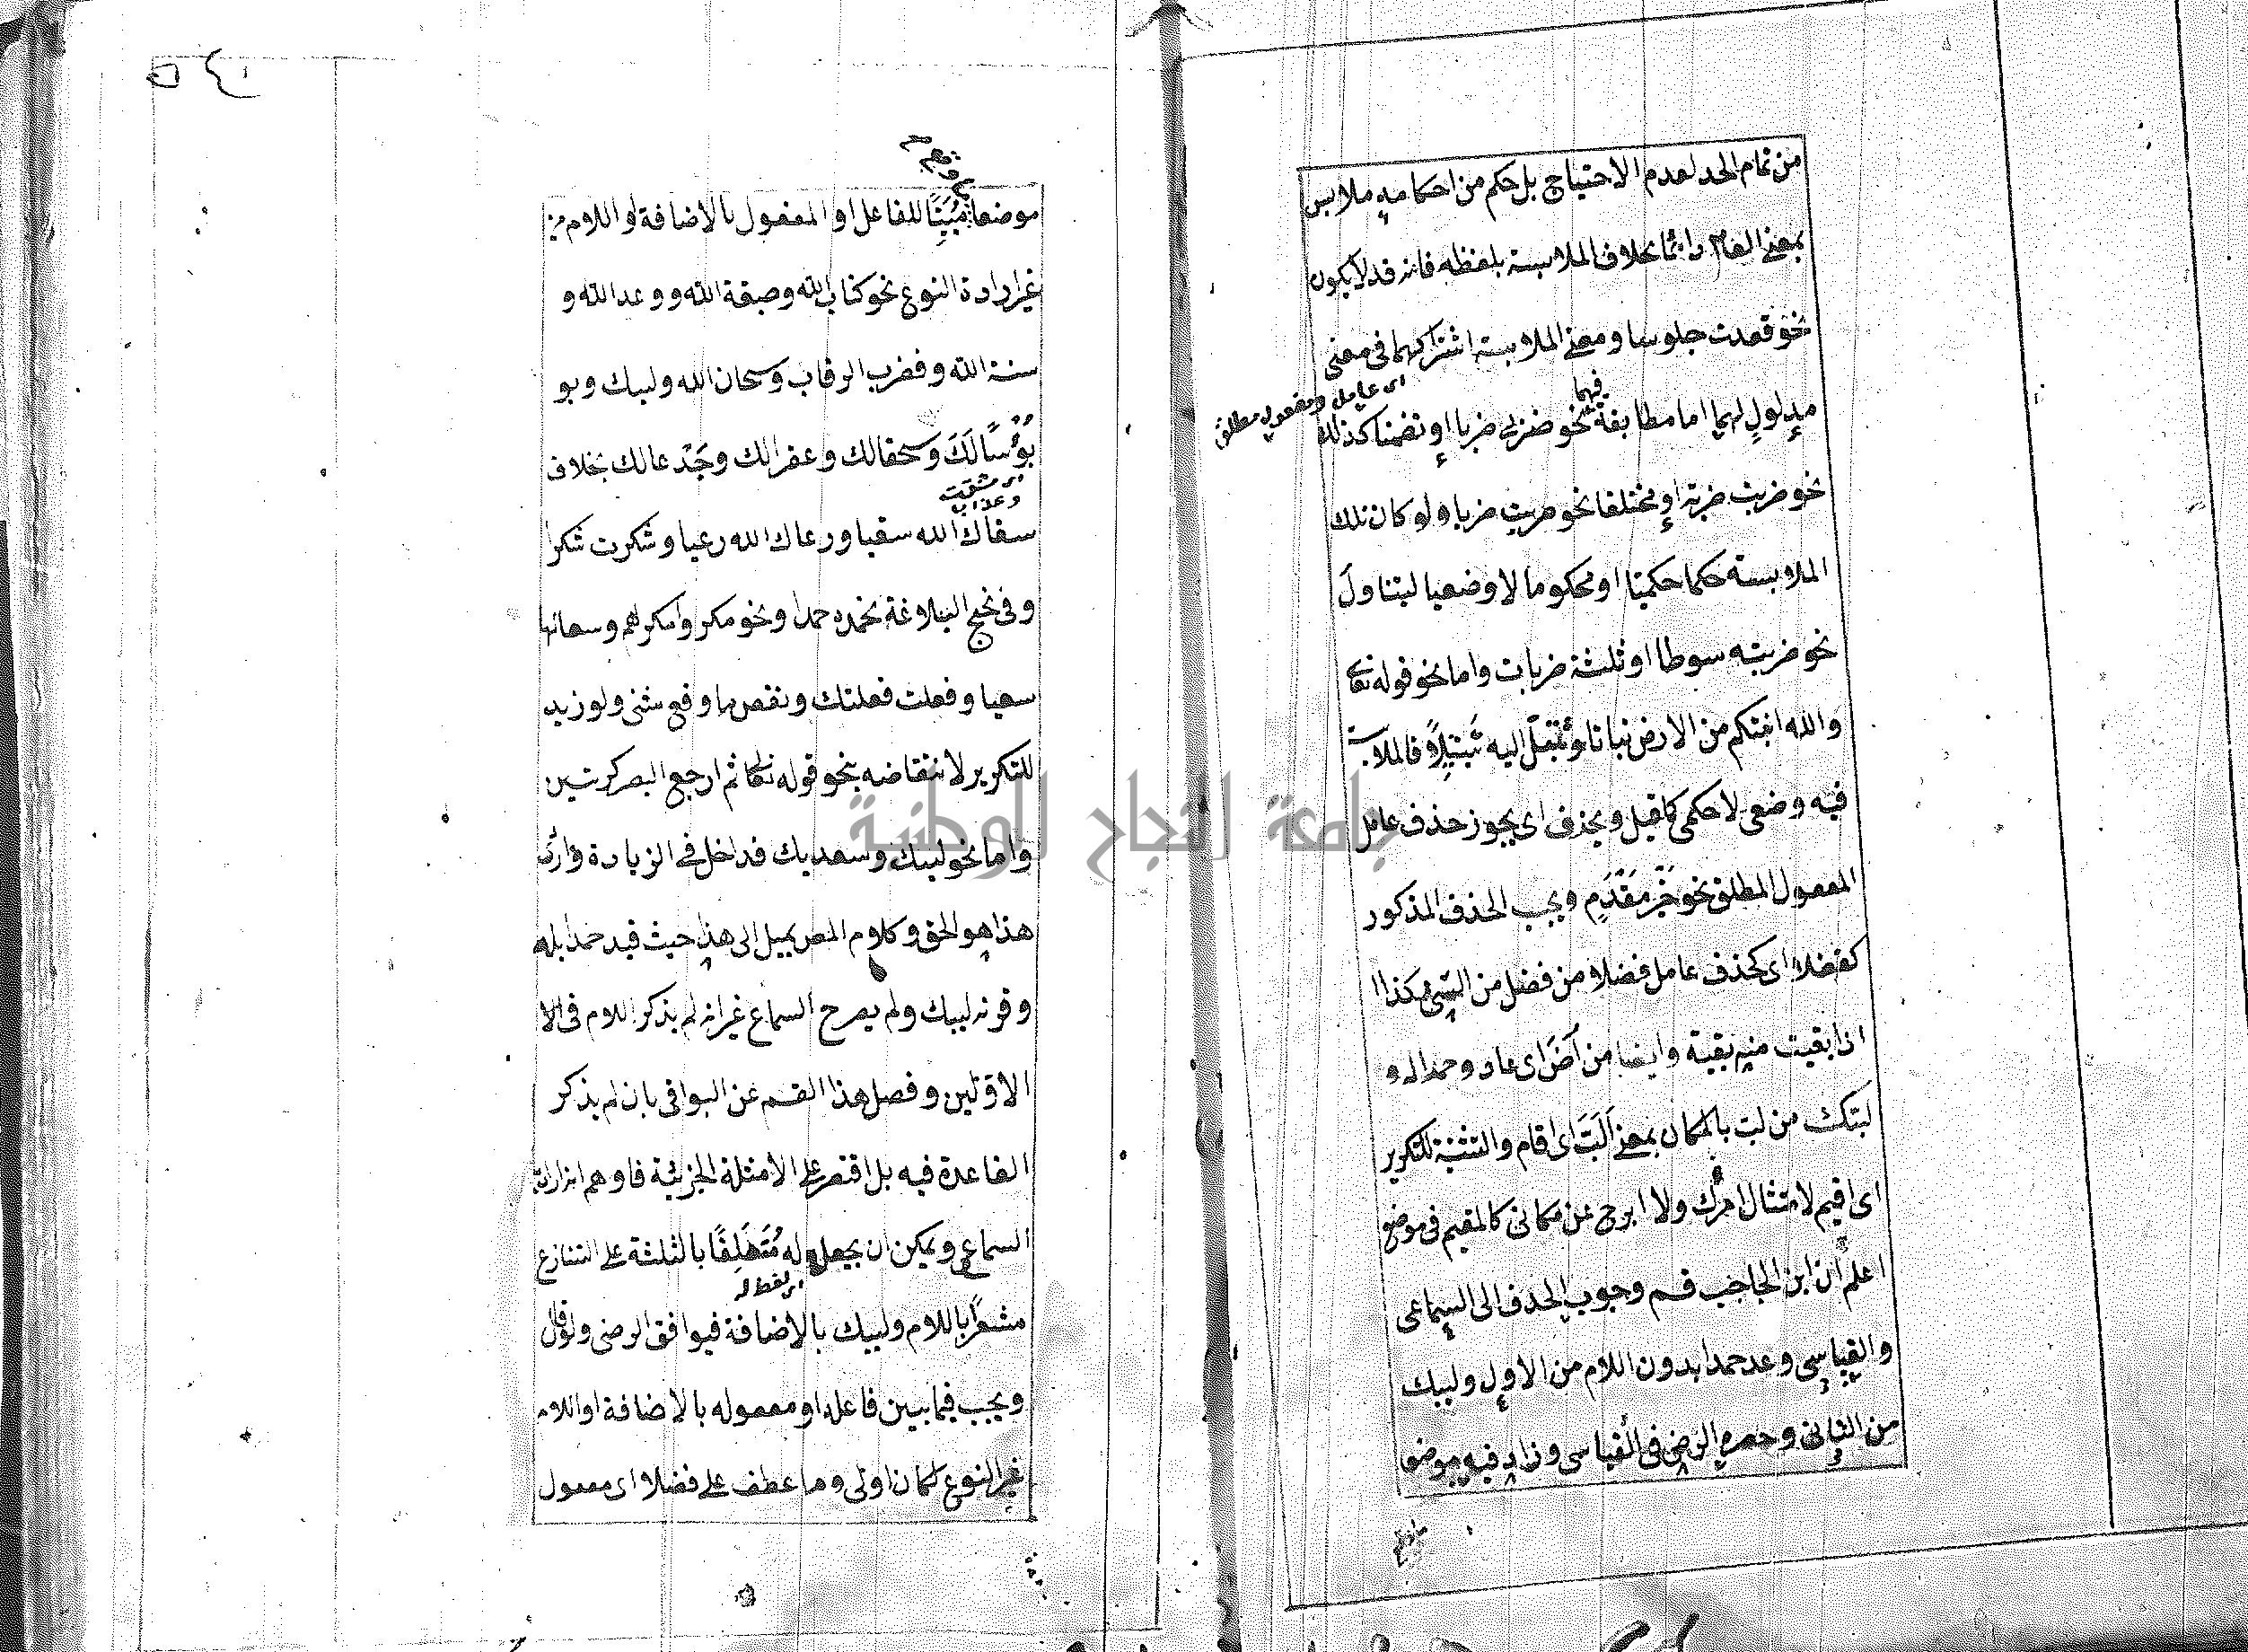 من تمام الحد لعدم الاحتياج بل حكم من احكامه ملابس
بمعنى العام دائما بخلاف الملابسة بلفظه فانه قد لا يكون
نحو قعدت جلوسا ومعنى الملابسة اشتراكهما فى معنى
اى عامل ومفعول مطلق
فيهما
مدلول لهما اما مطابقة نحو ضربى ضربا او تضمنا كذلك
نحو ضربت ضربة او مختلفا نحو ضربت ضربا ولو كان تلك
الملابسة حكما حكميا او محكوما لا وضعيا ليتناول
نحو ضربته سوطا او ثلثة ضربات واما نحو قوله تعالى
والله انبتكم من الارض نباتا وتبتل اليه تبتيلا فالملابسة
فيه وضعى لا حكمى كما قيل ويحذف اى يجوز حذف عامل
المفعول المطلق نحو خير مقدم ويجب الحذف المذكور
كفضلا اى كحذف عامل فضلا من فضل من الشئ كذا
اذا بقيت منه بقية وايضا من آض اى عاد وحمدا له و
لبيك من لب بالمكان بمعنى ألب اى اقام والتثنية للتكرير
اى اقيم لامتثال امرك ولا ابرح عن مكانى كالمقيم فى موضع
اعلم ان ابن الحاجب قسم وجوب الحذف الى السماعى
والقياسى وعد حمدا بدون اللام من الاول ولبيك
من الثانى وحصره الرضى فى القياسى وزاد فيه موضعا
موضعا مبينا للفاعل او المفعول بالاضافة او اللام من
غير ارادة النوع نحو كتاب الله وصبغة الله ووعد الله و
سنة الله وفضرب الرقاب وسبحان الله ولبيك وبو
بؤسا لك وسحقا لك وعقرا لك وجدعا لك بخلاف
اى مشقت وعذاب
سقاك الله سقيا ورعاك الله رعيا وشكرت شكرا
وفى نهج البلاغة نحمده حمدا ونحو مكروا مكرهم وسعى لها
سعيها وفعلت فعلتك ونقض بما وقع مثنى ولو زيد
للتكرير لانتقاضه بنحو قوله تعالى ثم ارجع البصر كرتين
واما نحو لبيك وسعديك فداخل فى الزيادة
هذا هو الحق وكلام المص يميل الى هذا حيث قيد حمدا بله
وقرنه لبيك ولم يصرح السماع غير انه لم يذكر اللام فى الا
الاولين وفصل هذا القسم عن البواقى بان لم يذكر
القاعدة فيه بل اقتصر على الامثلة الجزئية فاوهم
السماعى ويمكن ان يجعل له متعلقا بالثلثة على التنازع
اى لفظ له
مشعرا باللام ولبيك بالاضافة فيوافق الرضى ولو قال
ويجب فيما بين فاعله او مفعوله بالاضافة او اللام
غير النوع لكان اولى وما عطف على فضلا اى مفعول
جامعة النجاح الوطنية